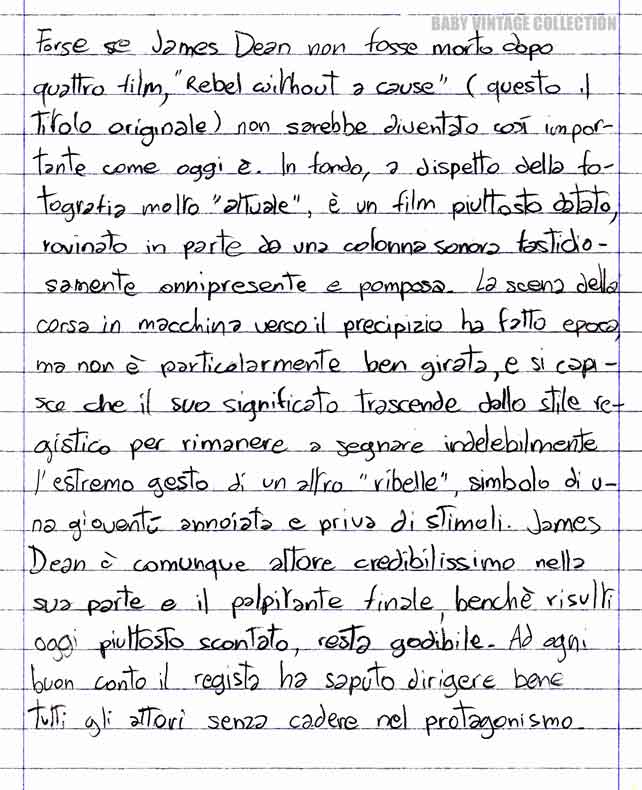 BABY VINTAGE COLLECTION
Forse se James Dean non fosse morto dopo
quattro film, "Rebel without a cause" (questo il
titolo originale) non sarebbe diventato così impor-
tante come oggi è. In fondo, a dispetto della fo-
tografia molto "attuale", è un film piuttosto datato,
rovinato in parte da una colonna sonora fastidio-
samente onnipresente e pomposa. La scena della
corsa in macchina verso il precipizio ha fatto epoca,
ma non è particolarmente ben girata, e si capi-
sce che il suo significato trascende dallo stile re-
gistico per rimanere a segnare indelebilmente
l'estremo gesto di un altro "ribelle", simbolo di u-
na gioventù annoiata e priva di stimoli. James
Dean è comunque attore credibilissimo nella
sua parte e il palpitante finale, benchè risulti
oggi piuttosto scontato, resta godibile. Ad ogni
buon conto il regista ha saputo dirigere bene
tutti gli attori senza cadere nel protagonismo.